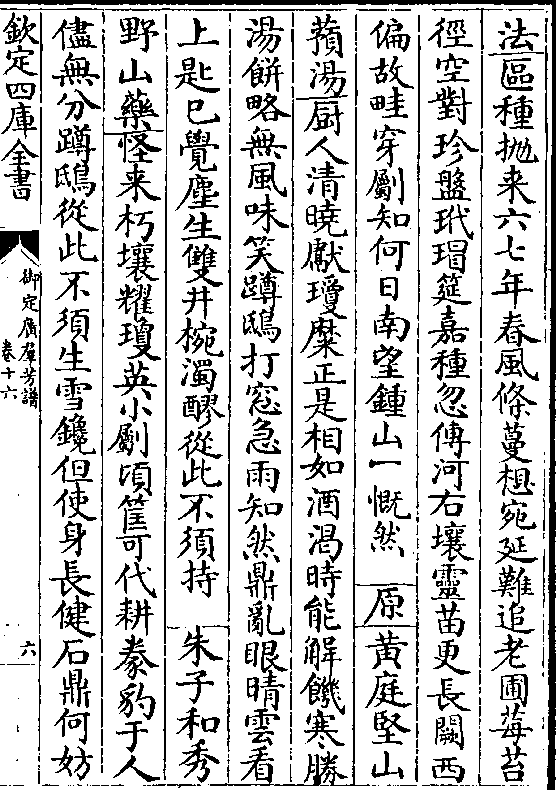 法區種抛来六七年春風條蔓想宛延難追老圃莓苔
徑空對珍盤玳瑁筵嘉種忽傳河右壤靈苗更長闕西
偏故畦穿斸知何日南望鍾山一慨然 原黄庭堅山
蕷湯厨人清曉獻瓊糜正是相如酒渴時能解饑寒勝
湯餅略無風味笑蹲鴟打窓急雨知然鼎亂眼晴雲看
上匙已覺塵生雙井椀濁醪從此不須持 朱子和秀
野山藥怪来朽壤耀瓊英小斸頃筐可代耕豢豹于人
儘無分蹲鴟從此不須生雪鑱但使身長健石鼎何妨
欽定四庫全書
御定廣羣芳譜
卷十六
六